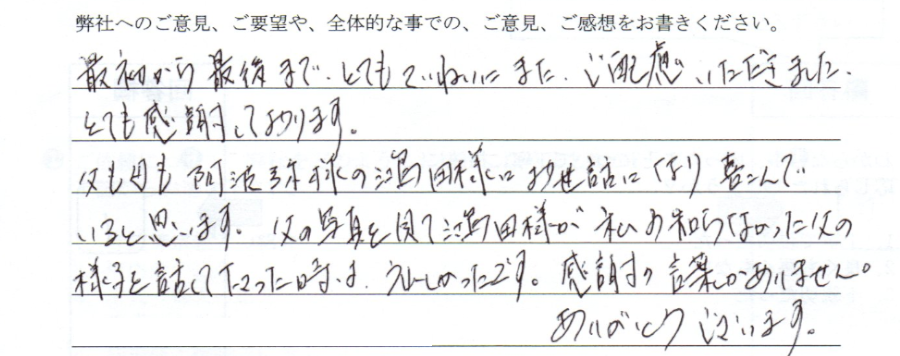 弊社へのご意見、ご要望や、全体的な事での、ご意見、ご感想をお書きください。
最初から最後まで、とてもていねいにまた、ご配慮いただきました。
とても感謝しております。
父も母も阿波弥様の濵田様にお世話になり喜こんで
いると思います。父の写真を見て濵田様が私の知らなかった父の
様子を話して下さった時は、うれしかったです。感謝の言葉しかありません。
ありがとうございます。